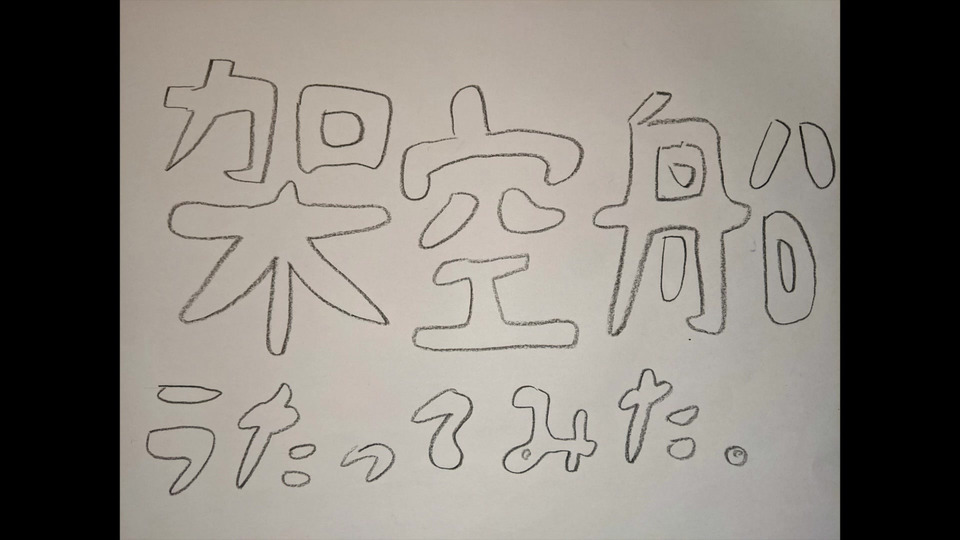 架空船
うたってみた。